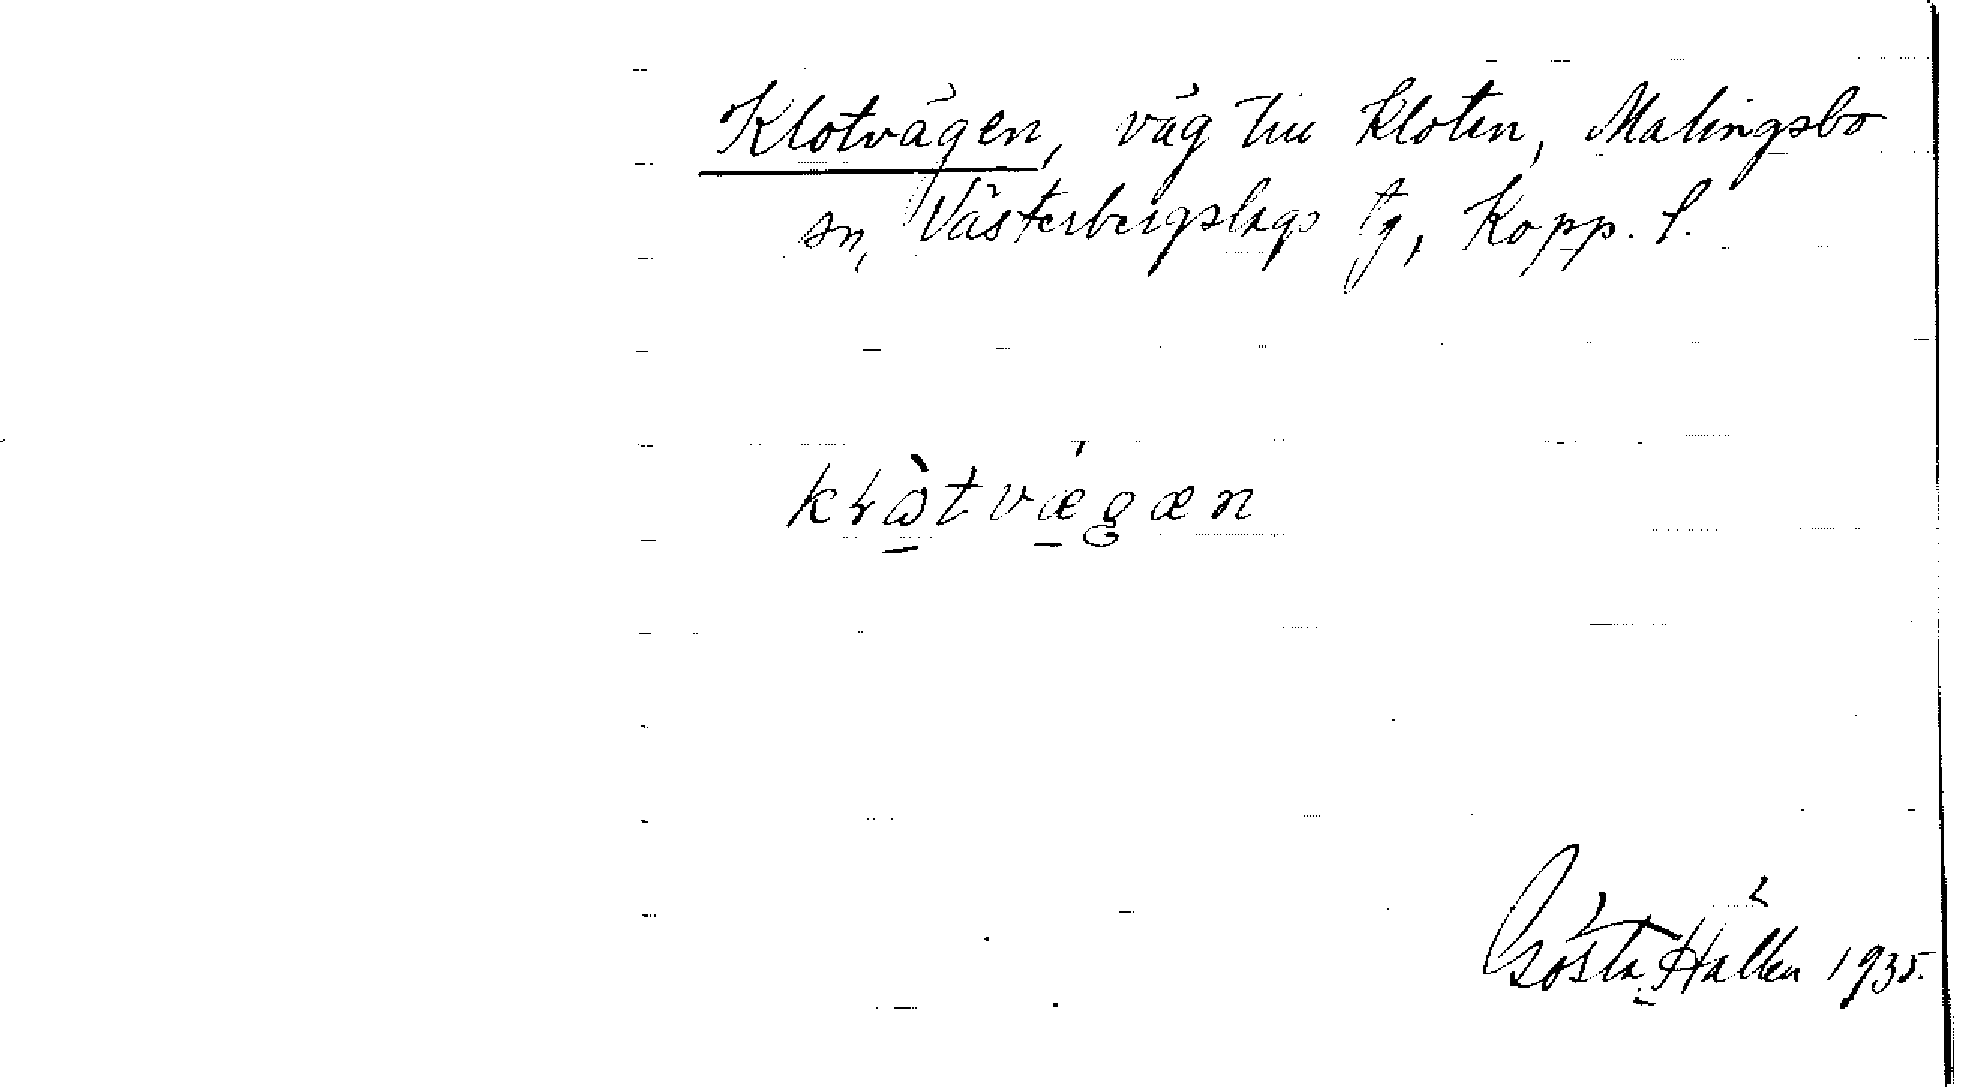 Klotvägen, väg till Kloten, Malingsbo
sn, Västerbergslags tg, Kopp. l.
Gösta Hallén 1935.